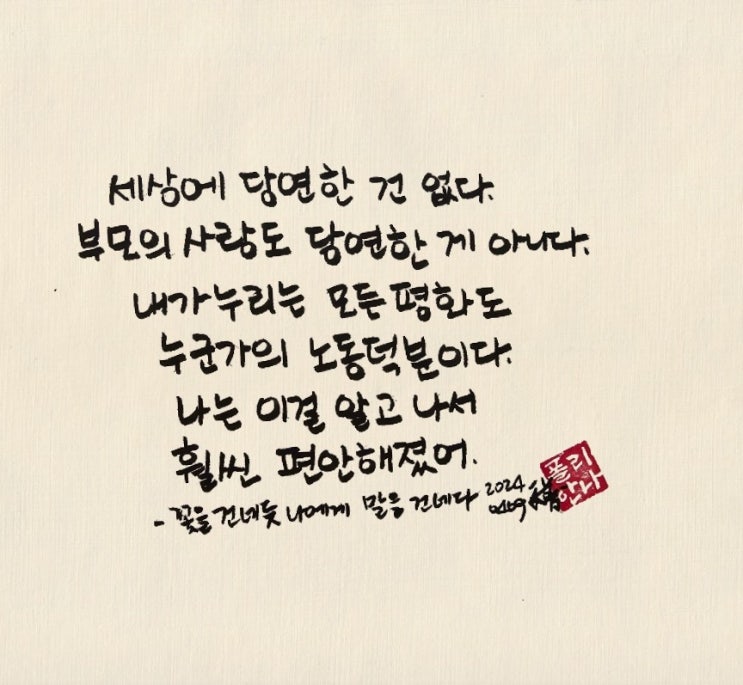 세상에 당연한 건 없다.
부모의 사랑도 당연한 게 아니다.
내가 누리는 모든 평화도
누군가의 노동덕분이다.
나는 이걸 알고 나서
훨씬 편안해졌어.
- 꽃을 건네듯 나에게 말을 건네다 2024
폴리
안나